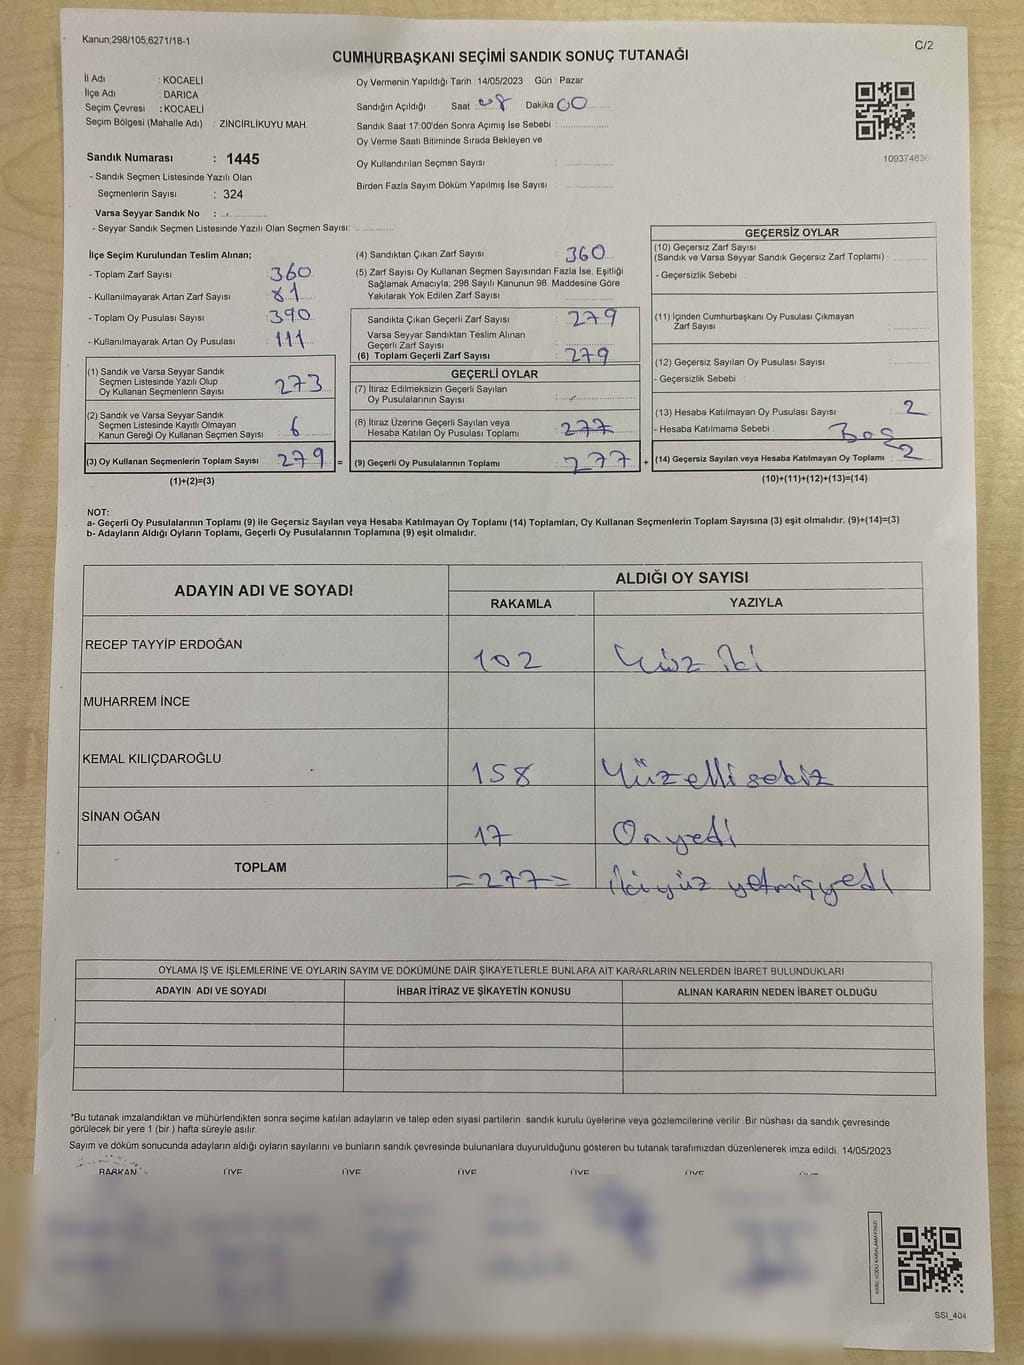 Kanun;298/105,6271/18-1
C/2
CUMHURBAŞKANI SEÇİMİ SANDIK SONUÇ TUTANAĞI
İl Adı : KOCAELİ
İlçe Adı : DARICA
Seçim Çevresi : KOCAELİ
Seçim Bölgesi (Mahalle Adı) : ZİNCİRLİKUYU MAH.
Sandık Numarası : 1445
- Sandık Seçmen Listesinde Yazılı Olan
Seçmenlerin Sayısı : 324
Varsa Seyyar Sandık No :
- Seyyar Sandık Seçmen Listesinde Yazılı Olan Seçmen Sayısı:
Oy Vermenin Yapıldığı Tarih : 14/05/2023 Gün : Pazar
Sandığın Açıldığı Saat 08 Dakika 00
Sandık Saat 17:00'den Sonra Açımış İse Sebebi :
Oy Verme Saati Bitiminde Sırada Bekleyen ve
Oy Kullandırılan Seçmen Sayısı :
Birden Fazla Sayım Döküm Yapılmış İse Sayısı :
109374836
İlçe Seçim Kurulundan Teslim Alınan;
- Toplam Zarf Sayısı : 360
- Kullanılmayarak Artan Zarf Sayısı : 81
- Toplam Oy Pusulası Sayısı : 390
- Kullanılmayarak Artan Oy Pusulası : 111
(1) Sandık ve Varsa Seyyar Sandık
Seçmen Listesinde Yazılı Olup
Oy Kullanan Seçmenlerin Sayısı : 273
(2) Sandık ve Varsa Seyyar Sandık
Seçmen Listesinde Kayıtlı Olmayan
Kanun Gereği Oy Kullanan Seçmen Sayısı : 6
(3) Oy Kullanan Seçmenlerin Toplam Sayısı : 279 =
(1)+(2)=(3)
(4) Sandıktan Çıkan Zarf Sayısı : 360
(5) Zarf Sayısı Oy Kullanan Seçmen Sayısından Fazla İse, Eşitliği
Sağlamak Amacıyla; 298 Sayılı Kanunun 98. Maddesine Göre
Yakılarak Yok Edilen Zarf Sayısı
Sandıkta Çıkan Geçerli Zarf Sayısı : 279
Varsa Seyyar Sandıktan Teslim Alınan
Geçerli Zarf Sayısı
(6) Toplam Geçerli Zarf Sayısı : 279
GEÇERLİ OYLAR
(7) İtiraz Edilmeksizin Geçerli Sayılan
Oy Pusulalarının Sayısı :
(8) İtiraz Üzerine Geçerli Sayılan veya
Hesaba Katılan Oy Pusulası Toplamı : 277
(9) Geçerli Oy Pusulalarının Toplamı : 277 +
GEÇERSİZ OYLAR
(10) Geçersiz Zarf Sayısı
(Sandık ve Varsa Seyyar Sandık Geçersiz Zarf Toplamı) :
- Geçersizlik Sebebi :
(11) İçinden Cumhurbaşkanı Oy Pusulası Çıkmayan
Zarf Sayısı :
(12) Geçersiz Sayılan Oy Pusulası Sayısı :
- Geçersizlik Sebebi :
(13) Hesaba Katılmayan Oy Pusulası Sayısı : 2
- Hesaba Katılmama Sebebi : Boş
(14) Geçersiz Sayılan veya Hesaba Katılmayan Oy Toplamı : 2
(10)+(11)+(12)+(13)=(14)
NOT:
a- Geçerli Oy Pusulalarının Toplamı (9) ile Geçersiz Sayılan veya Hesaba Katılmayan Oy Toplamı (14) Toplamları, Oy Kullanan Seçmenlerin Toplam Sayısına (3) eşit olmalıdır. (9)+(14)=(3)
b- Adayların Aldığı Oyların Toplamı, Geçerli Oy Pusulalarının Toplamına (9) eşit olmalıdır.
ADAYIN ADI VE SOYADI
ALDIĞI OY SAYISI
RAKAMLA YAZIYLA
RECEP TAYYİP ERDOĞAN 102 Yüz iki
MUHARREM İNCE
KEMAL KILIÇDAROĞLU 158 Yüzelli sekiz
SİNAN OĞAN 17 Onyedi
TOPLAM =277= ikiyüz yetmişyedi
OYLAMA İŞ VE İŞLEMLERİNE VE OYLARIN SAYIM VE DÖKÜMÜNE DAİR ŞİKAYETLERLE BUNLARA AİT KARARLARIN NELERDEN İBARET BULUNDUKLARI
ADAYIN ADI VE SOYADI İHBAR İTİRAZ VE ŞİKAYETİN KONUSU ALINAN KARARIN NEDEN İBARET OLDUĞU
*Bu tutanak imzalandıktan ve mühürlendikten sonra seçime katılan adayların ve talep eden siyasi partilerin sandık kurulu üyelerine veya gözlemcilerine verilir. Bir nüshası da sandık çevresinde
görülecek bir yere 1 (bir ) hafta süreyle asılır.
Sayım ve döküm sonucunda adayların aldığı oyların sayılarını ve bunların sandık çevresinde bulunanlara duyurulduğunu gösteren bu tutanak tarafımızdan düzenlenerek imza edildi. 14/05/2023
BAŞKAN ÜYE ÜYE ÜYE ÜYE ÜYE
SSI_404